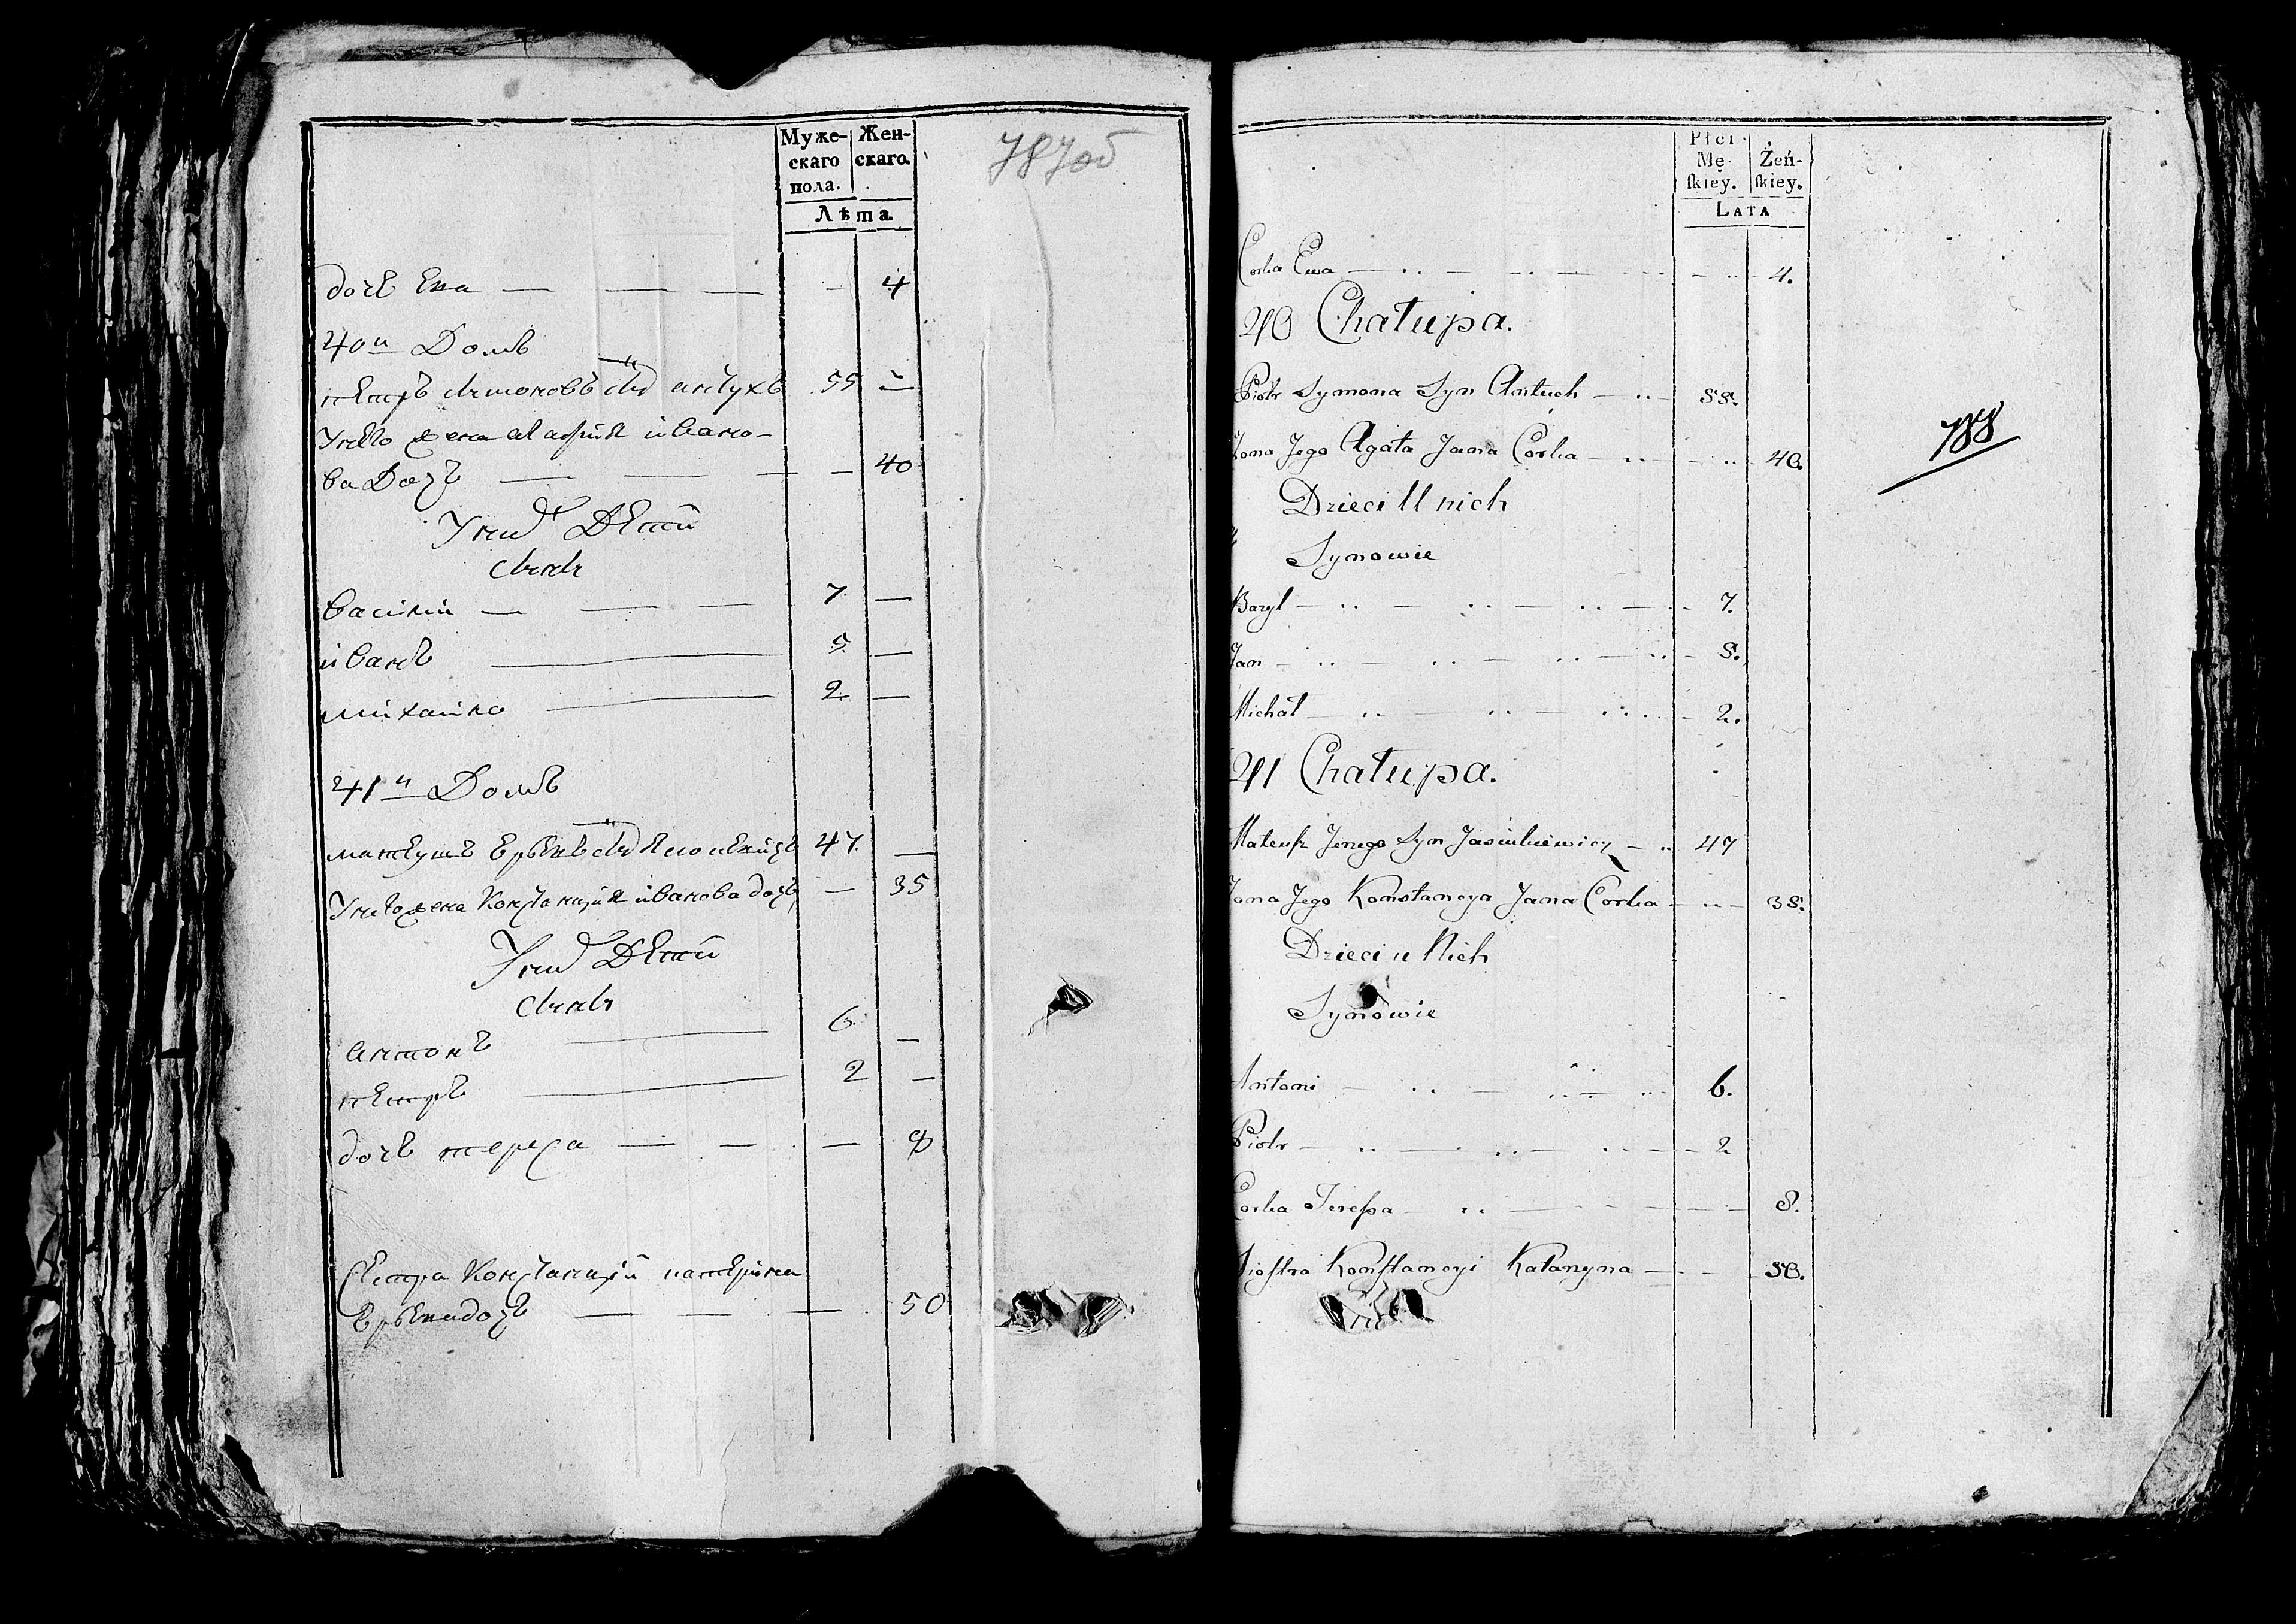 Муже-
скаго
пола.
Жен-
скаго.
Лѣта
787об
дочь Ева — — — — 4
40й Домъ
петръ сымоновъ сынъ антухъ 55 —
Унего жена агафия ивано-
ва Дочь — — — — 40
Уних Дети
сыны
василий — — — 7 —
иванъ — 5 —
михайло — 2 —
41й Домъ
матеушъ сынъ 47 —
Унего жена Констанция иванова дочь — 35
Уних Дети
сыны
антонъ — 6 —
петръ — 2 —
дочь тереса — — — 8
сестра Констанции катерина
дочь — — — 50
Płci
Mę-
ſkiey.
Żeń-
ſkiey.
LATA
Corka Ewa 4.
40 Chałupa.
Piotr Symona Syn Antuch 55.
Żona Jego Agata Jana Corka 40.
788
Dzieci U nich
Synowie
Bazyl 7.
Jan 5.
Michał 2.
41 Chałupa.
Mateuſz Syn 47
Żona Jego Konstancya Jana Corka 35.
Dzieci u Nich
Synowie
Antoni 6.
Piotr 2
Corka Tereſsa 8.
Sioſtra Konſtancyi Katarzyna 50.